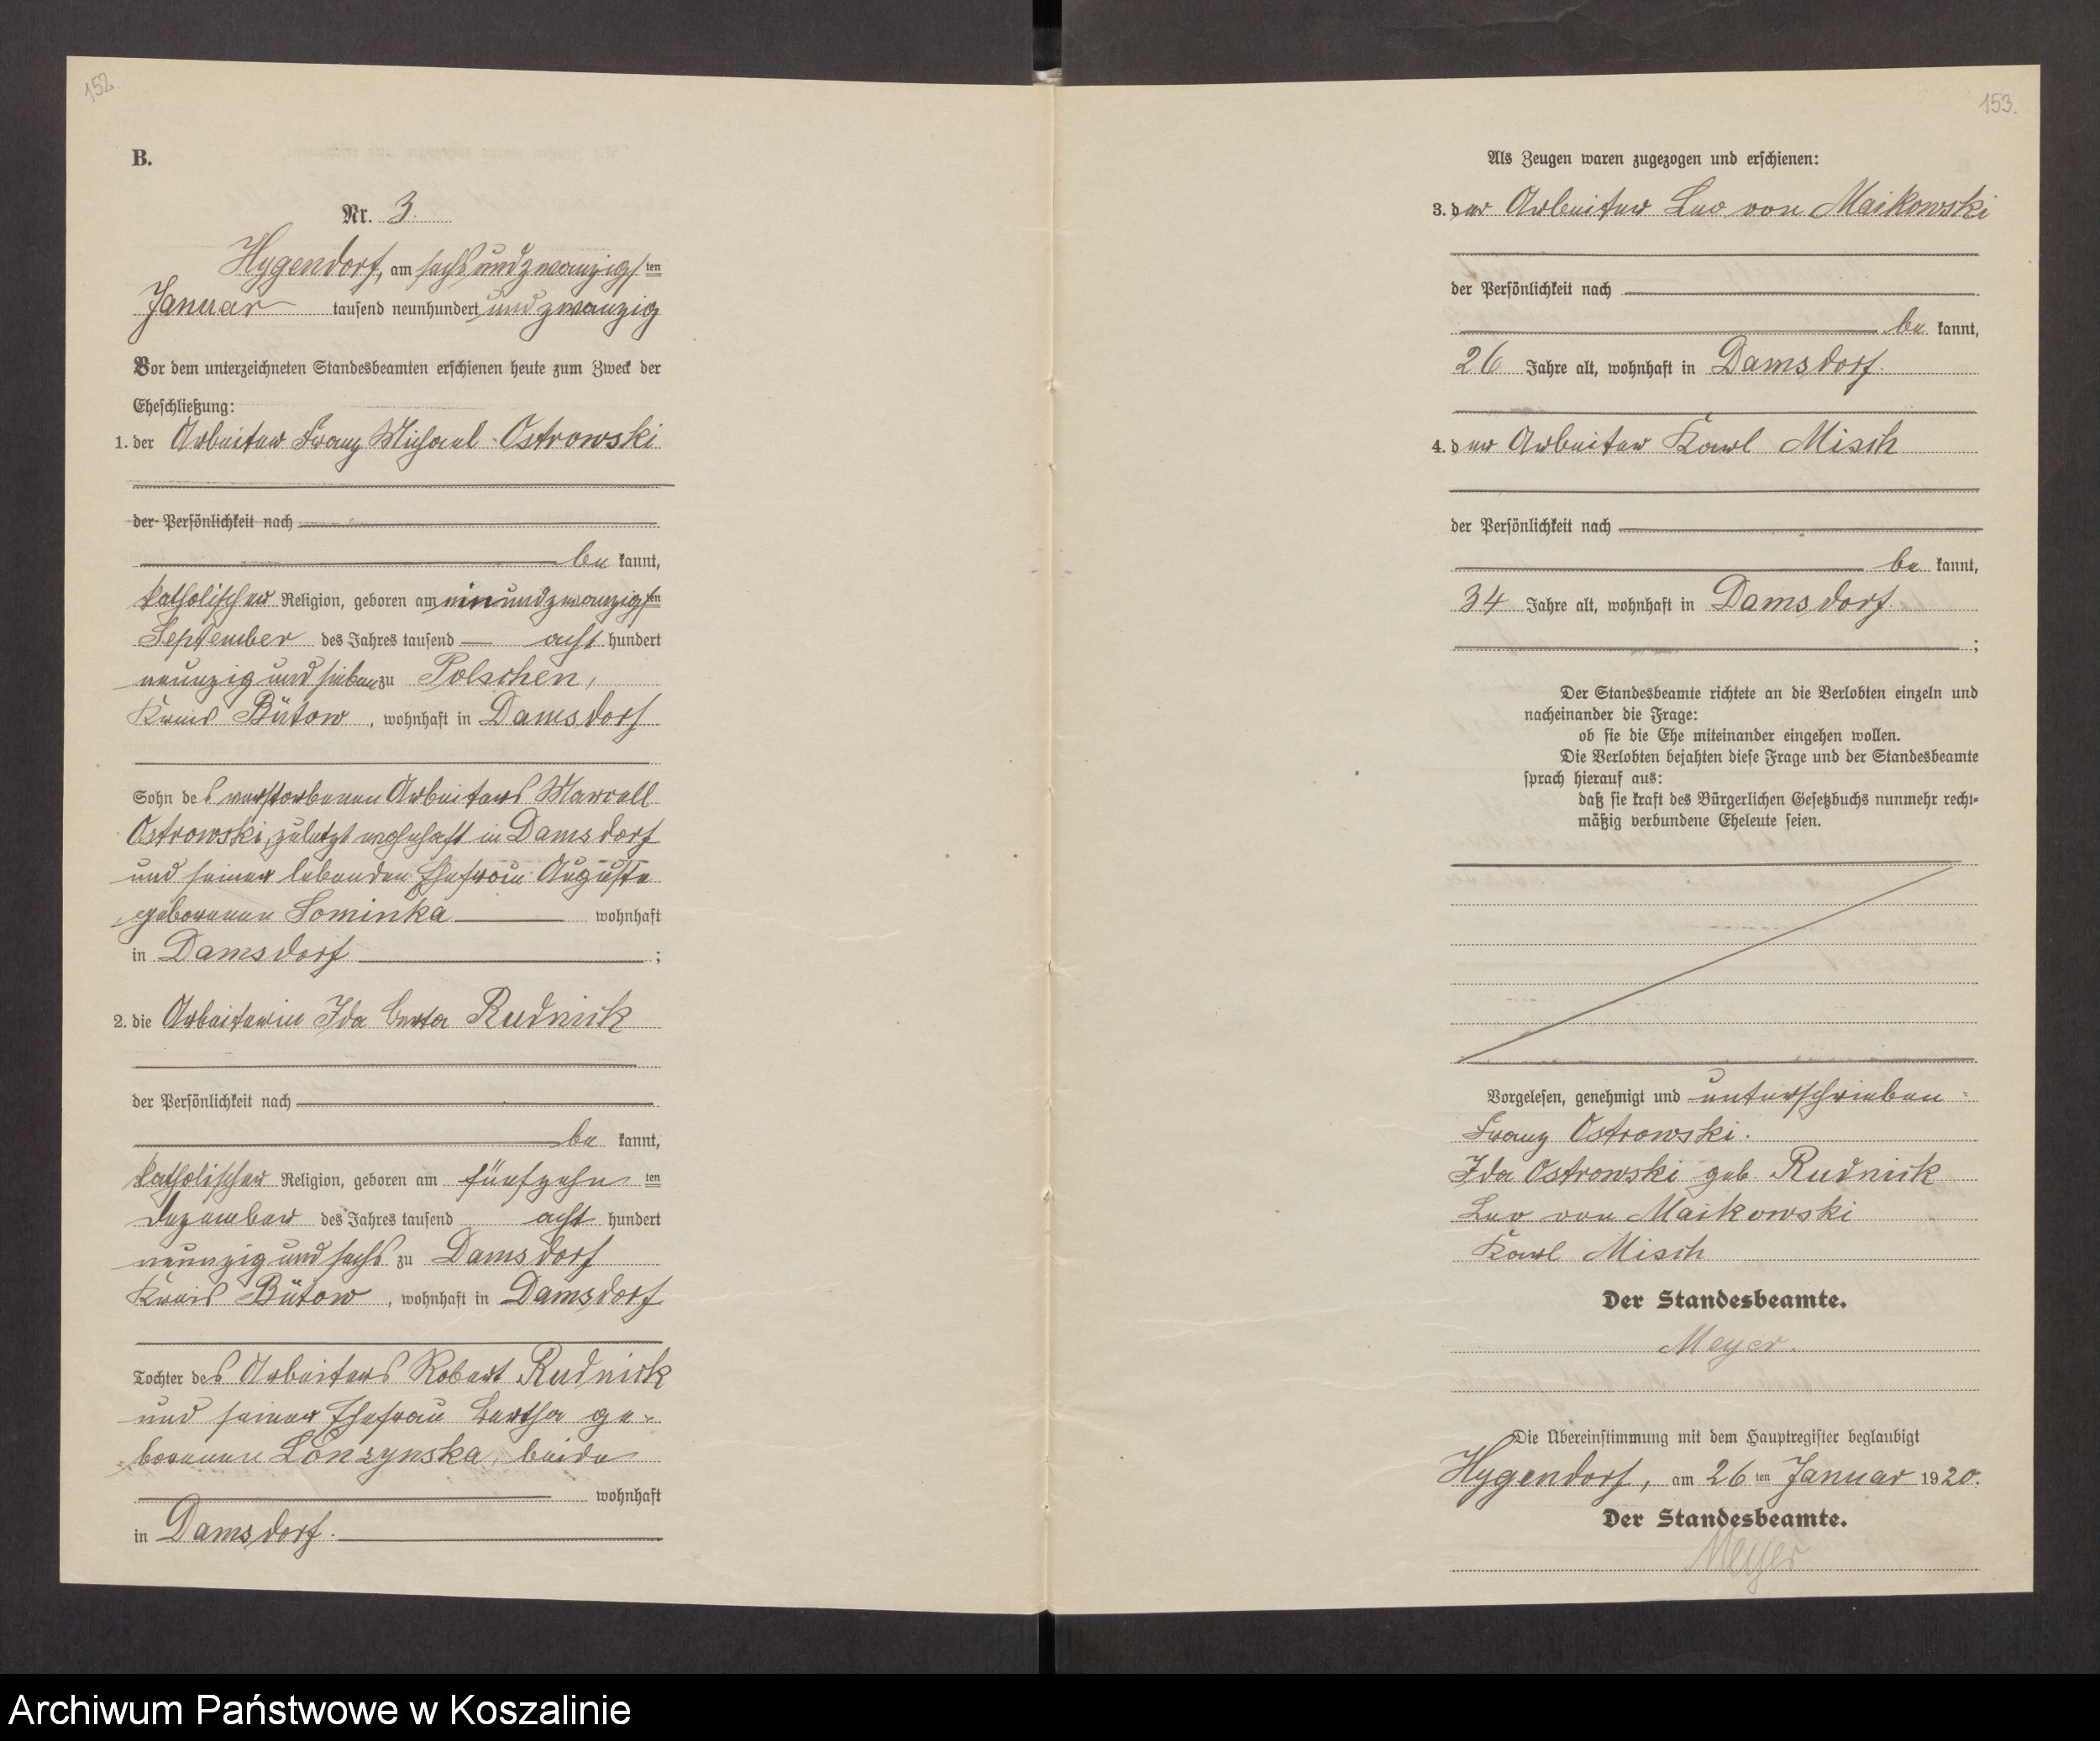 152.
B.
Nr. 3.
Hygendorf, am sechsundzwanzigsten
Januar tausend neunhundert und zwanzig
Vor dem unterzeichneten Standesbeamten erschienen heute zum Zweck der
Eheschließung:
1. der Arbeiter Franz Michael Ostrowski
der Persönlichkeit nach
be kannt,
katholischer Religion, geboren am einundzwanzigsten
September des Jahres tausend acht hundert
neunzig und sieben zu Polschen,
Kreis Bütow, wohnhaft in Damsdorf
Sohn des verstorbenen Arbeiters Marcell
Ostrowski, zuletzt wohnhaft in Damsdorf
und seiner lebenden Ehefrau Auguste
geborenen Sominka wohnhaft
in Damsdorf ;
2. die Arbeiterin Ida Berta Rudnick
der Persönlichkeit nach
be kannt,
katholischer Religion, geboren am fünfzehn ten
Dezember des Jahres tausend acht hundert
neunzig und sechs zu Damsdorf
Kreis Bütow, wohnhaft in Damsdorf
Tochter des Arbeiters Robert Rudnick
und seiner Ehefrau Bertha ge-
borenen Lonzynska, beide
wohnhaft
in Damsdorf.
153.
Als Zeugen waren zugezogen und erschienen:
3. der Arbeiter Leo von Maikowski
der Persönlichkeit nach
be kannt,
26 Jahre alt, wohnhaft in Damsdorf.
4. der Arbeiter Karl Misch
der Persönlichkeit nach
be kannt,
34 Jahre alt, wohnhaft in Damsdorf.
;
Der Standesbeamte richtete an die Verlobten einzeln und
nacheinander die Frage:
ob sie die Ehe miteinander eingehen wollen.
Die Verlobten bejahten diese Frage und der Standesbeamte
sprach hierauf aus:
daß sie kraft des Bürgerlichen Gesetzbuchs nunmehr recht-
mäßig verbundene Eheleute seien.
Vorgelesen, genehmigt und unterschrieben:
Franz Ostrowski.
Ida Ostrowski geb. Rudnick
Leo von Maikowski
Karl Misch
Der Standesbeamte.
Meyer.
Die Übereinstimmung mit dem Hauptregister beglaubigt
Hygendorf, am 26 ten Januar 1920.
Der Standesbeamte.
Meyer
Archiwum Państwowe w Koszalinie